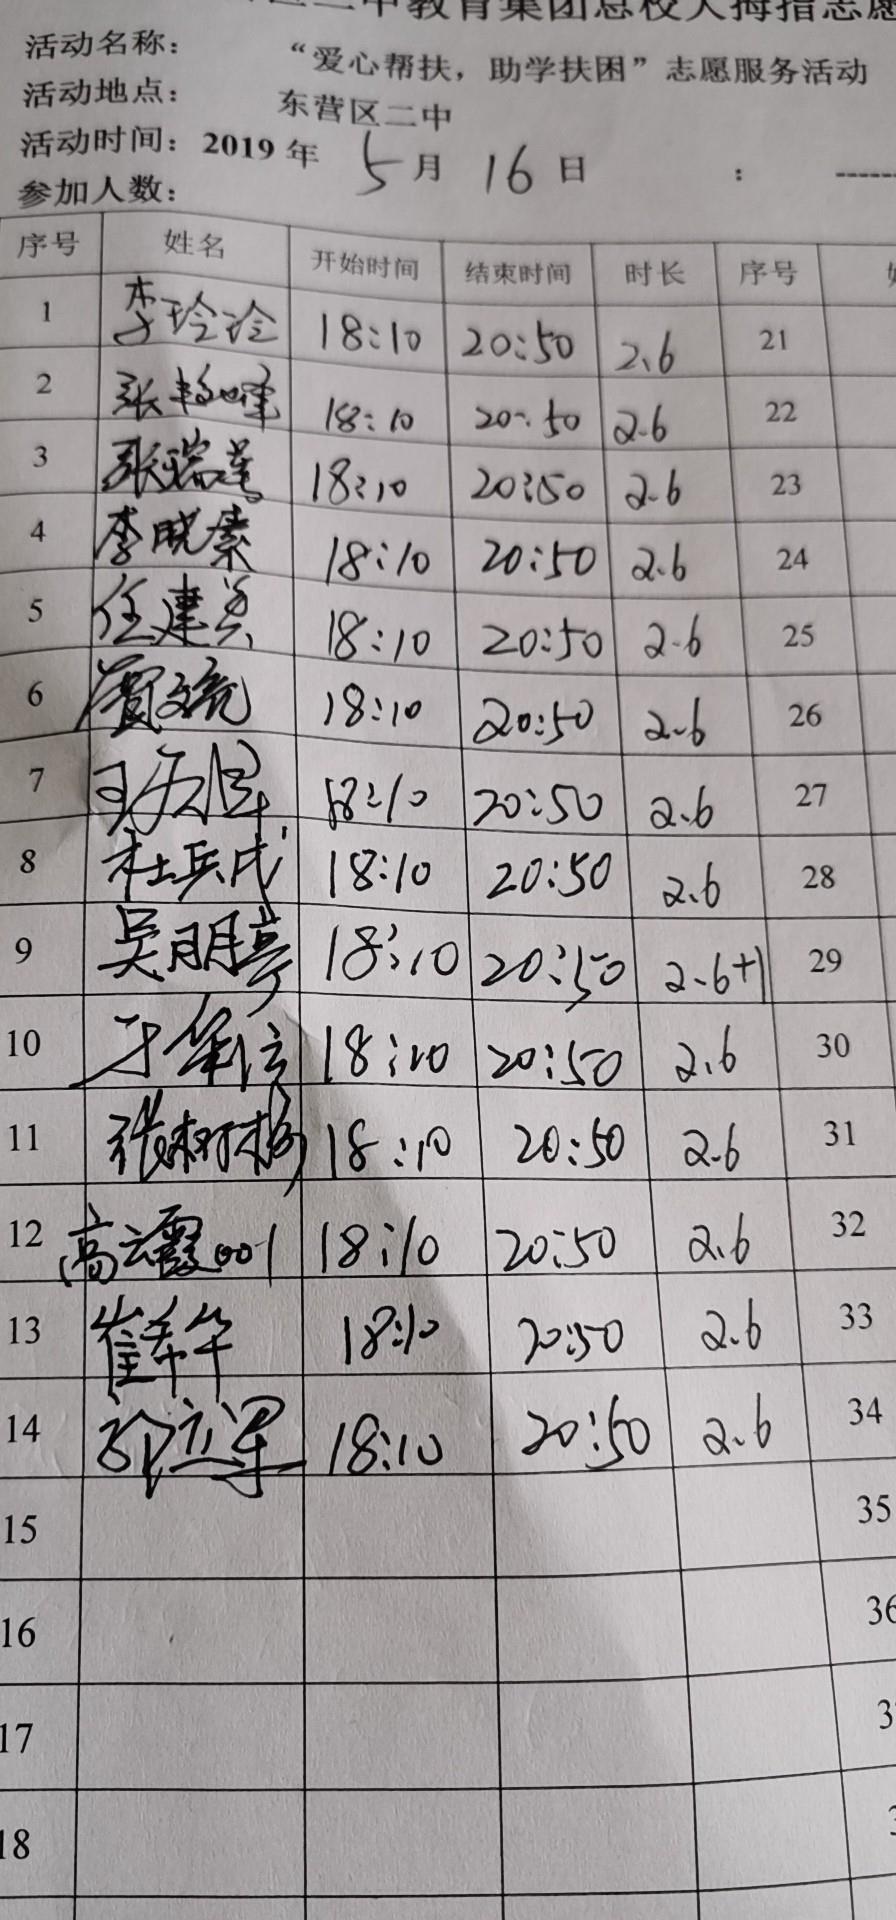 区二中教育集团总校大拇指志愿
活动名称： “爱心帮扶，助学扶困”志愿服务活动
活动地点： 东营区二中
活动时间：2019 年 5 月 16 日 ：
参加人数：
序号 姓名 开始时间 结束时间 时长 序号
1 李玲玲 18:10 20:50 2.6 21
2 张 18:10 20:50 2.6 22
3 张瑞莲 18:10 20:50 2.6 23
4 李晓素 18:10 20:50 2.6 24
5 任建 18:10 20:50 2.6 25
6 贾文亮 18:10 20:50 2.6 26
7 18:10 20:50 2.6 27
8 杜兵成 18:10 20:50 2.6 28
9 吴明亮 18:10 20:50 2.6+1 29
10 18:10 20:50 2.6 30
11 张树杨 18:10 20:50 2.6 31
12 高云霞001 18:10 20:50 2.6 32
13 崔 18:10 20:50 2.6 33
14 18:10 20:50 2.6 34
15 35
16 36
17
18